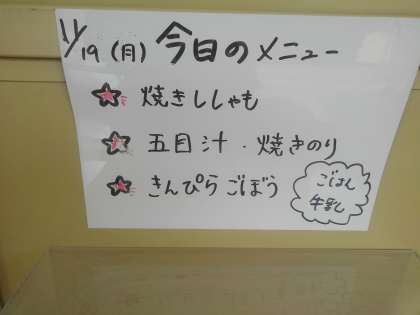 11/19(月) 今日のメニュー
焼きししゃも
五目汁・焼きのり
きんぴらごぼう
ごはん
牛乳